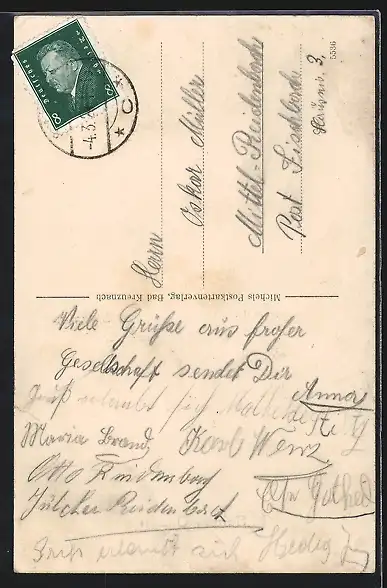 Deutsches Reich
8 8
-4.3.
* C *
5536
Herrn
Oskar Müller
Mittel-Reidenbach
Post Fischbach
Hausnr. 3.
Michels Postkartenverlag, Bad Kreuznach
Viele Grüße aus froher
Gesellschaft sendet Dir
Anna
Gruß erlaubt sich
Maria Brandz Karl Wenz
Otto Reidenbach
Julchen Reidenbach
Gruß erlaubt sich Hedwig